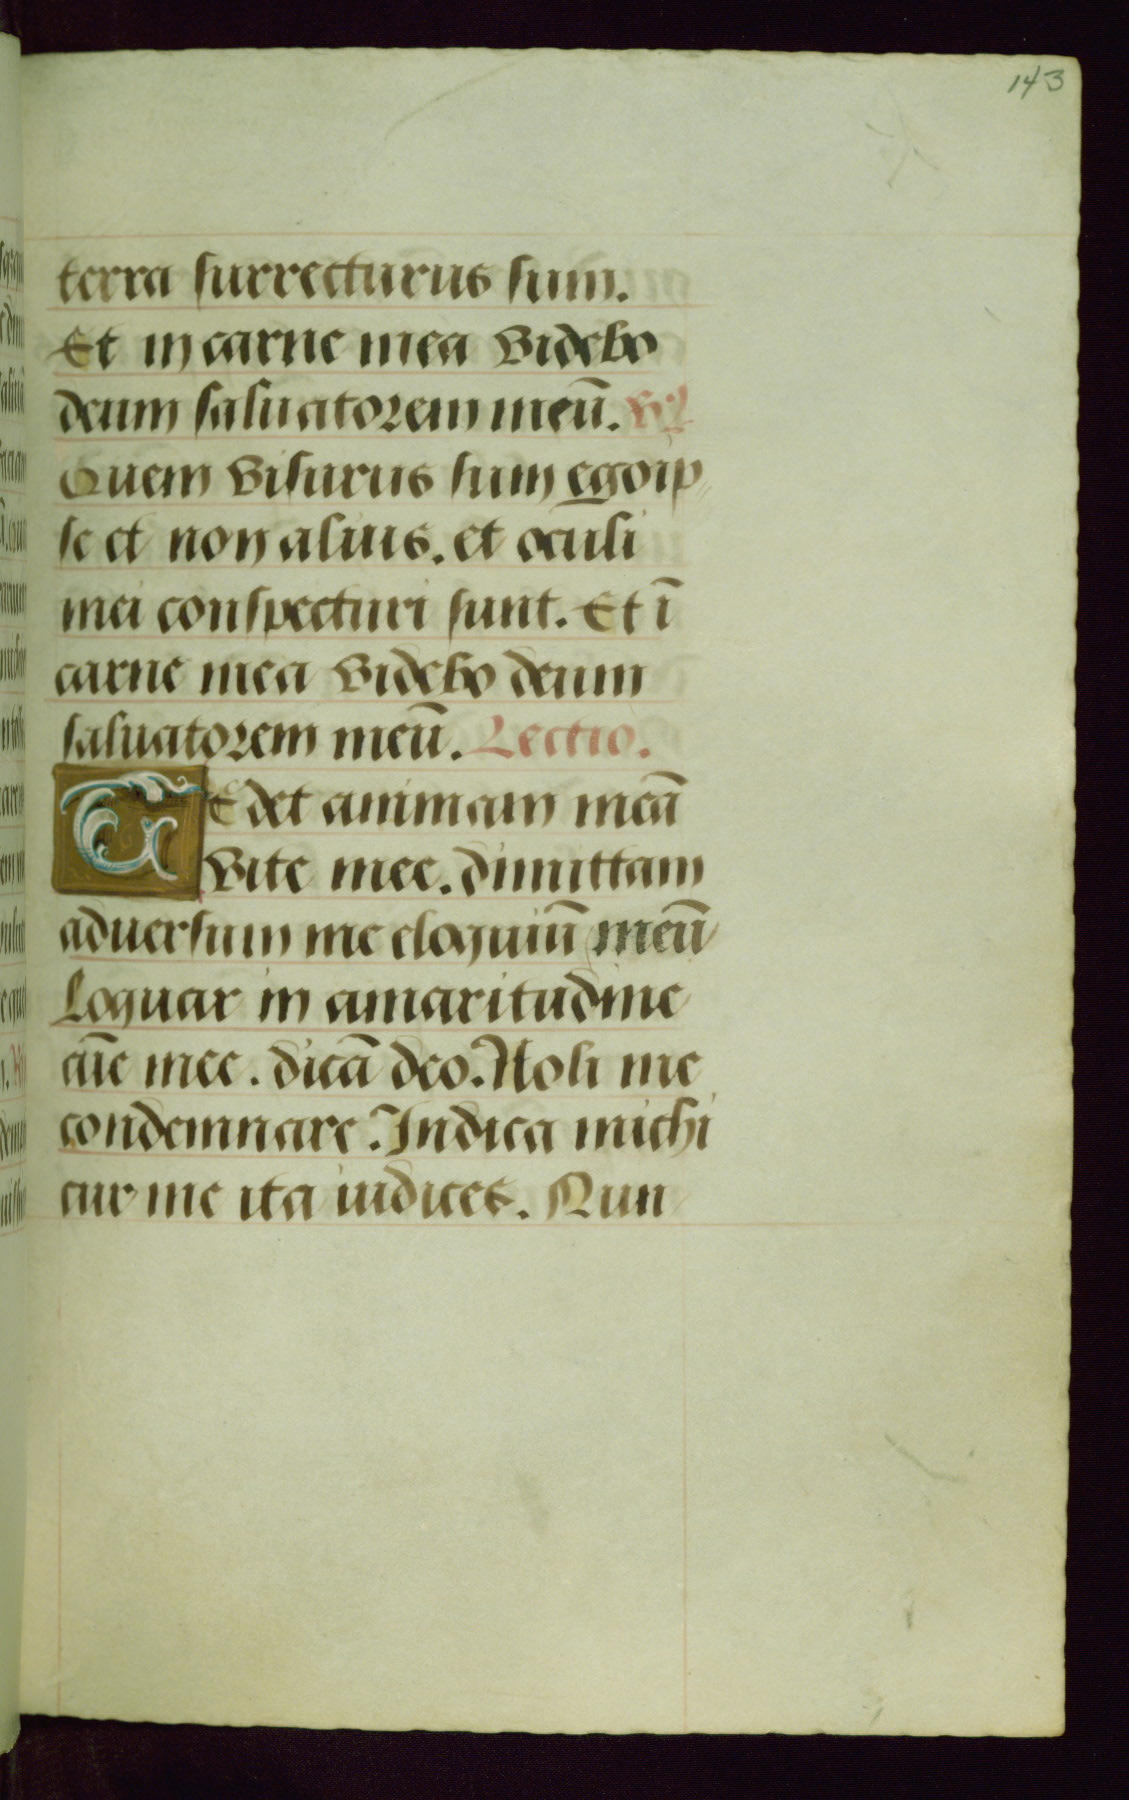 143
terra surrecturus sum.
Et in carne mea videbo
deum saluatorem meū. V̄
Quem visurus sum egoip
se et non alius. et oculi
mei conspecturi sunt. Et ī
carne mea videbo deum
saluatorem meū. Lectio.
TEdet animam meā
vite mee. dimittam
aduersum me eloquiū meū
Loquar in amaritudine
aīe mee. dicā deo. Noli me
condemnare. Indica michi
cur me ita iudices. Nun